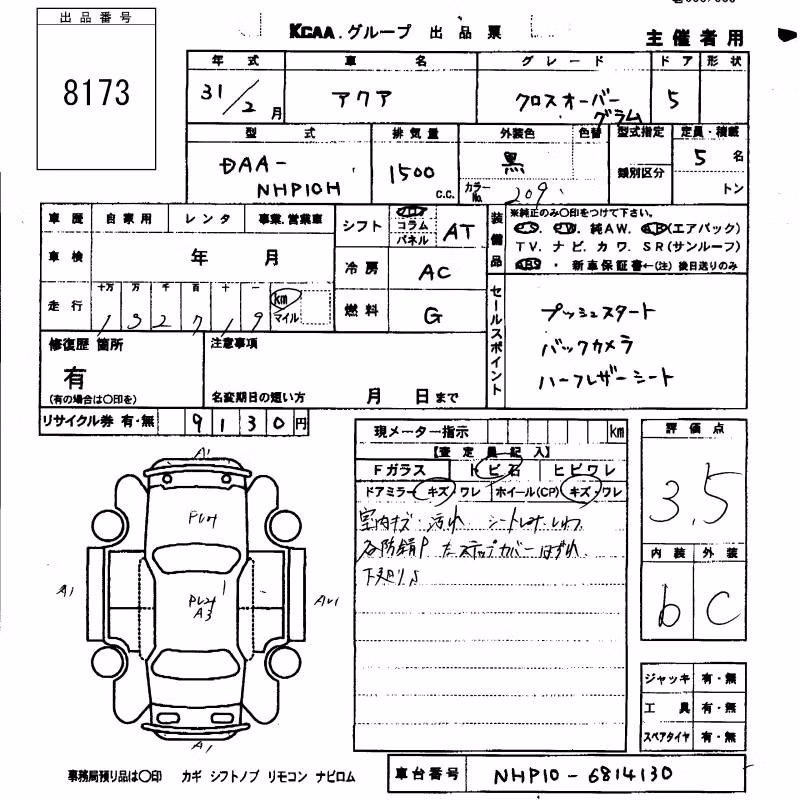 出品番号
8173
KCAA.グループ 出品票
主催者用
年式 車名 グレード ドア 形状
31/2月 アクア クロスオーバー グラム 5
型式 排気量 外装色 色替 型式指定 定員・積載
DAA-NHP10H 1500 c.c. 黒 カラーNo. 209 類別区分 5名 トン
車歴 自家用 レンタ 事業.営業車
車検 年 月
走行 十万 万 千 百 十 一 km マイル
132719
シフト フロア コラム パネル AT
冷房 AC
燃料 G
装備品 ※純正のみ〇印をつけて下さい。
P.S. P.W. 純AW. A.B(エアバック)
TV. ナビ. カワ. SR(サンルーフ)
ABS ・ 新車保証書←(注)後日送りのみ
セールスポイント
プッシュスタート
バックカメラ
ハーフレザーシート
修復歴 箇所
有
(有の場合は〇印を)
注意事項
名変期日の短い方 月 日まで
リサイクル券 有・無 9130円
現メーター指示 km
【査定員記入】
Fガラス トビ石 ヒビワレ
ドアミラー キズ・ワレ ホイール(CP) キズ・ワレ
室内キズ・汚れ シート
下廻りS
評価点
3.5
内装 外装
b C
ジャッキ 有・無
工具 有・無
スペアタイヤ 有・無
A1
A1
A3
A1
事務局預り品は〇印 カギ シフトノブ リモコン ナビロム
車台番号 NHP10-6814130